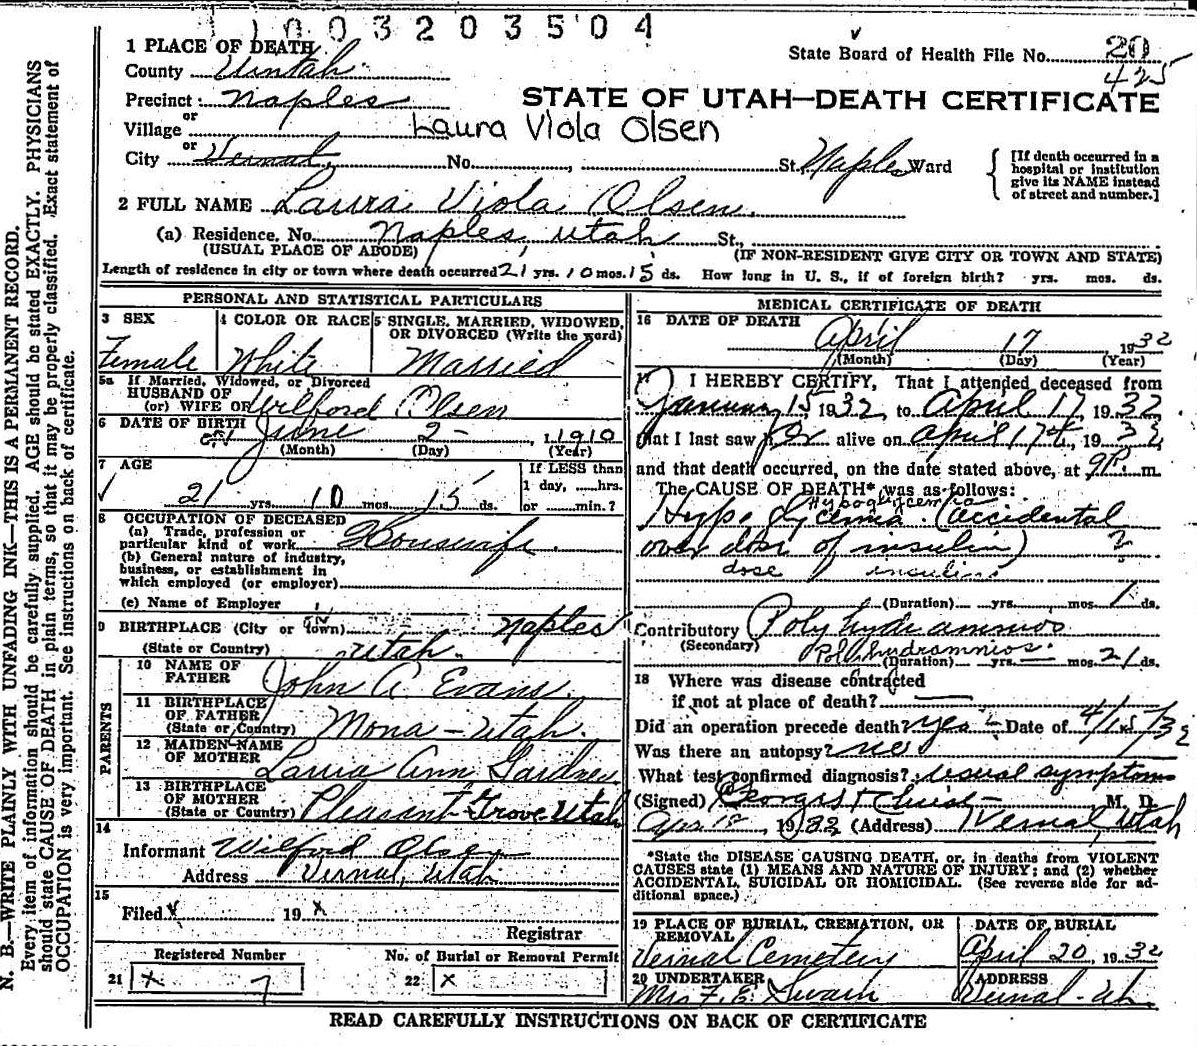 1003203504
1 PLACE OF DEATH
State Board of Health File No. 20
425
County Uintah
Precinct Naples
STATE OF UTAH—DEATH CERTIFICATE
or
Village
Laura Viola Olsen
or
City Vernal, No. , St. Naples Ward
[If death occurred in a hospital or institution give its NAME instead of street and number.]
2 FULL NAME Laura Viola Olsen.
(a) Residence, No. Naples, Utah St.,
(USUAL PLACE OF ABODE) (IF NON-RESIDENT GIVE CITY OR TOWN AND STATE)
Length of residence in city or town where death occurred 21 yrs. 10 mos. 15 ds. How long in U. S., if of foreign birth? yrs. mos. ds.
PERSONAL AND STATISTICAL PARTICULARS
3 SEX
Female
4 COLOR OR RACE
White
5 SINGLE, MARRIED, WIDOWED, OR DIVORCED (Write the word)
Married
5a If Married, Widowed, or Divorced
HUSBAND OF
(or) WIFE OF Wilford Olsen
6 DATE OF BIRTH June 2 - , 1910
(Month) (Day) (Year)
7 AGE
21 yrs. 10 mos. 15 ds.
If LESS than
1 day, hrs.
or min.?
8 OCCUPATION OF DECEASED
(a) Trade, profession or
particular kind of work Housewife.
(b) General nature of industry,
business, or establishment in
which employed (or employer)
(c) Name of Employer
9 BIRTHPLACE (City or Town) Naples
(State or Country) Utah.
PARENTS
10 NAME OF
FATHER John A. Evans.
11 BIRTHPLACE
OF FATHER
(State or Country) Mona - Utah.
12 MAIDEN NAME
OF MOTHER Laura Ann Gardner
13 BIRTHPLACE
OF MOTHER
(State or Country) Pleasant Grove Utah
14
Informant Wilford Olsen
Address Vernal, Utah
15
Filed X 19 X
Registrar
Registered Number
21 X 7
No. of Burial or Removal Permit
22 X
MEDICAL CERTIFICATE OF DEATH
16 DATE OF DEATH
April 17 1932
(Month) (Day) (Year)
17 I HEREBY CERTIFY, That I attended deceased from
January 15 1932, to April 17, 1932.
that I last saw her alive on April 17th, 1932
and that death occurred, on the date stated above, at 9P. m.
The CAUSE OF DEATH* was as follows:
Hypoglycemia
Hypo glycemia (accidental
over dose of insulin)
dose insulin
(Duration) yrs. mos. 1 ds.
Contributory Polyhydramnios
(Secondary) Polyhydramnios.
(Duration) yrs. — mos. 21 ds.
18 Where was disease contracted
if not at place of death?
Did an operation precede death? yes - Date of 4/15/32
Was there an autopsy? no
What test confirmed diagnosis? usual symptoms
(Signed) M. D.
1932 (Address) Vernal, Utah
*State the DISEASE CAUSING DEATH, or, in deaths from VIOLENT
CAUSES state (1) MEANS AND NATURE OF INJURY; and (2) whether
ACCIDENTAL, SUICIDAL OR HOMICIDAL. (See reverse side for ad-
ditional space.)
19 PLACE OF BURIAL, CREMATION, OR
REMOVAL
Vernal Cemetery
DATE OF BURIAL
April 20, 1932
20 UNDERTAKER
Mrs F. E. Swain
ADDRESS
Vernal - Ut
READ CAREFULLY INSTRUCTIONS ON BACK OF CERTIFICATE
N. B.—WRITE PLAINLY WITH UNFADING INK—THIS IS A PERMANENT RECORD.
Every item of information should be carefully supplied. AGE should be stated EXACTLY. PHYSICIANS
should state CAUSE OF DEATH in plain terms, so that it may be properly classified. Exact statement of
OCCUPATION is very important. See instructions on back of certificate.